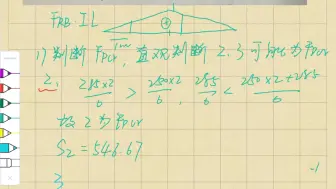 FRB IL
1) 判断 Fpcr, 直观判断 2.3 可能为 Fpcr
2. 285×2/6 > 250×2/6, 285/6 < 250×2+285/6
故 2 为 Fpcr
S₂ = 546.67
3